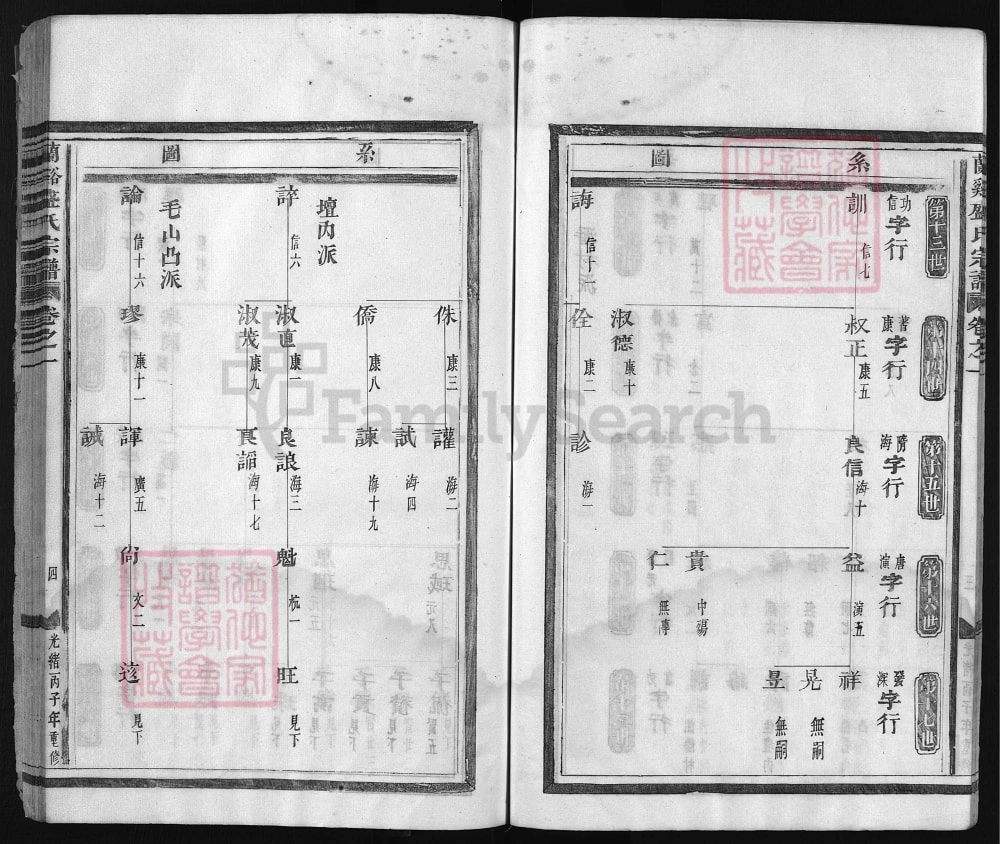 系圖
第十三世
功信字行
訓 信七
誨 信十一
第十四世
康字行
叔正 康五
淑德 康十
佺 康二
第十五世
海字行
良信 海十
診 海一
第十六世
唐演字行
益 演五
貴 中殤
仁 無傳
第十七世
發深字行
祥
晃 無嗣
昱 無嗣
系圖
壇丙派
誶 信六
毛山凸派
論 信十六
侏 康三
僑 康八
淑直 康一
淑茂 康九
璆 康十一
讙 海二
試 海四
諫 海十九
良諒 海三
良謟 海十七
諢 廣五
誠 海十二
魁 杭一
尙 文二
旺 見下
見下
卷之一
四
光緒丙子年重修
FamilySearch